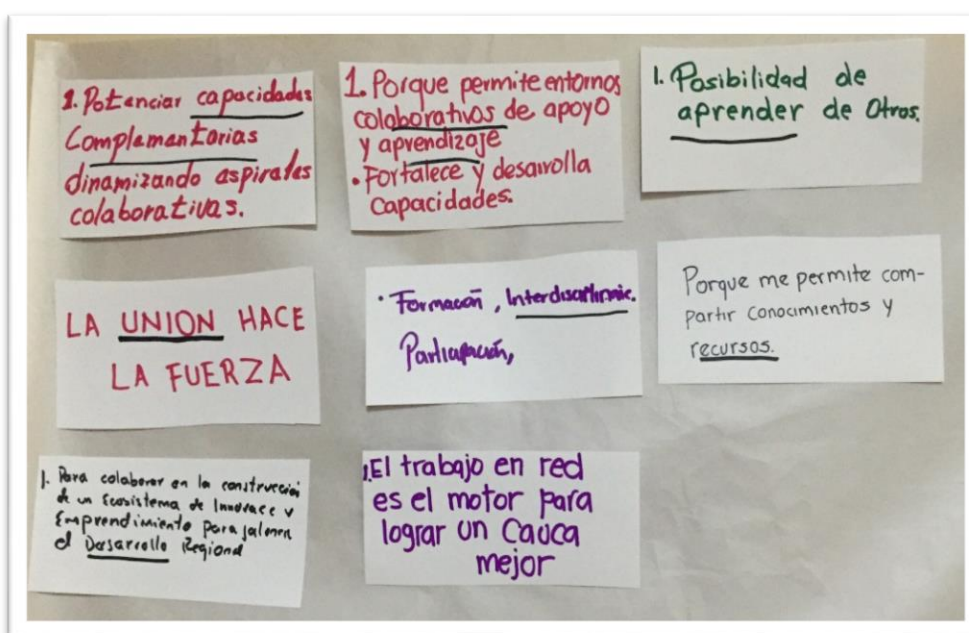 1. Potenciar capacidades
Complementarias
dinamizando espirales
colaborativas.
1. Porque permite entornos
colaborativos de apoyo
y aprendizaje
• Fortalece y desarrolla
Capacidades.
1. Posibilidad de
aprender de Otros.
LA UNION HACE
LA FUERZA
• Formación, Interdisciplinic.
Participación,
Porque me permite com-
partir conocimientos y
recursos.
1. Para colaborar en la construcción
de un Ecosistema de
Emprendimiento para jalonen
el Desarrollo Regional
1. El trabajo en red
es el motor para
lograr un Cauca
mejor